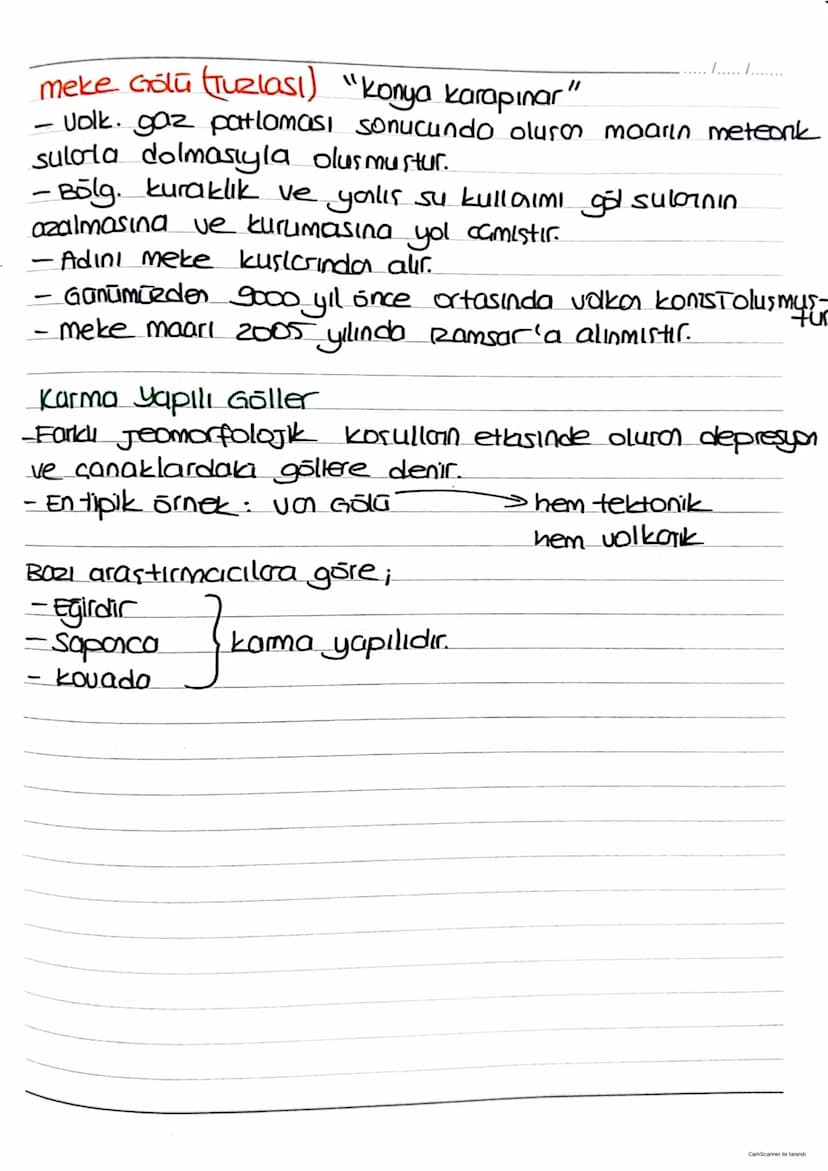 ..... /..... /.......
Meke Gölü (Tuzlası) "Konya Karapınar"
- Volk. gaz patlaması sonucunda oluşan maarın meteorik
sularla dolmasıyla oluşmuştur.
- Bölg. kuraklık ve yanlış su kullanımı göl sularının
azalmasına ve kurumasına yol açmıştır.
- Adını meke kuşlarından alır.
- Günümüzden 9000 yıl önce ortasında volkan konisi oluşmuş-
tur
- Meke maarı 2005 yılında Ramsar'a alınmıştır.
Karma Yapılı Göller
- Farklı jeomorfolojik koşulların etkisinde oluşan depresyon
ve çanaklardaki göllere denir.
- En tipik örnek: Van Gölü → hem tektonik
hem volkanik
Bazı araştırmacılara göre;
- Eğirdir
- Sapanca } karma yapılıdır.
- Kovada
CamScanner ile tarandı